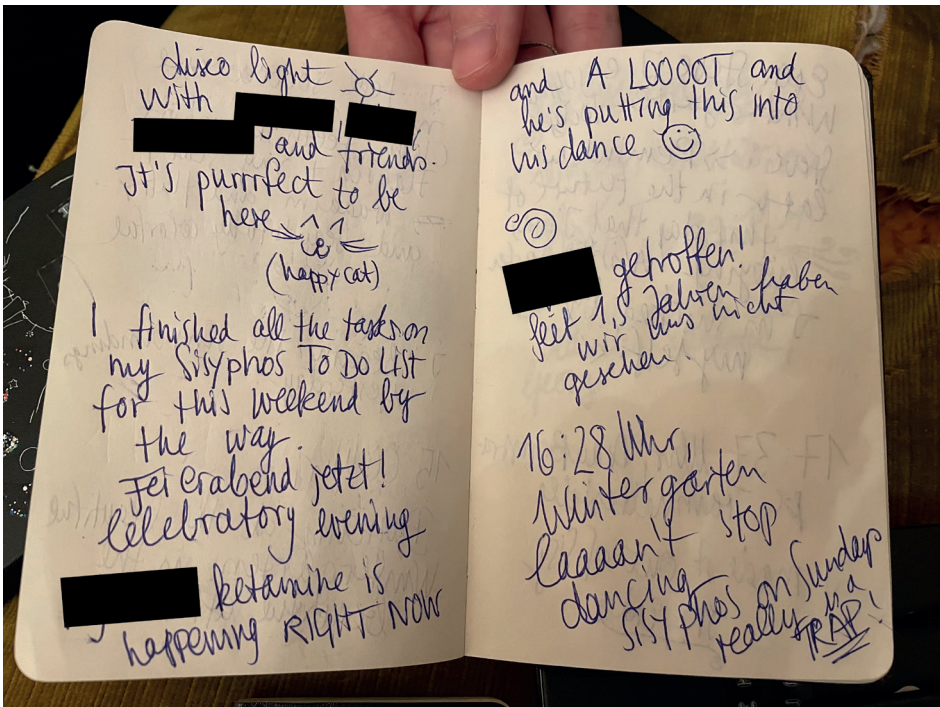 disco light
with
and friends.
It's purrrfect to be
here
(happy cat)
I finished all the tasks on
my Sisyphos To Do List
for this weekend by
the way.
Feierabend jetzt!
Celebratory evening
ketamine is
happening RIGHT NOW
and A LOOOOT and
he's putting this into
his dance
getroffen!
Seit 1,5 Jahren haben
wir uns nicht
gesehen.
16:28 Uhr,
Wintergarten
Caaaan't stop
dancing
Sisyphos on Sundays
really is a
TRAP!